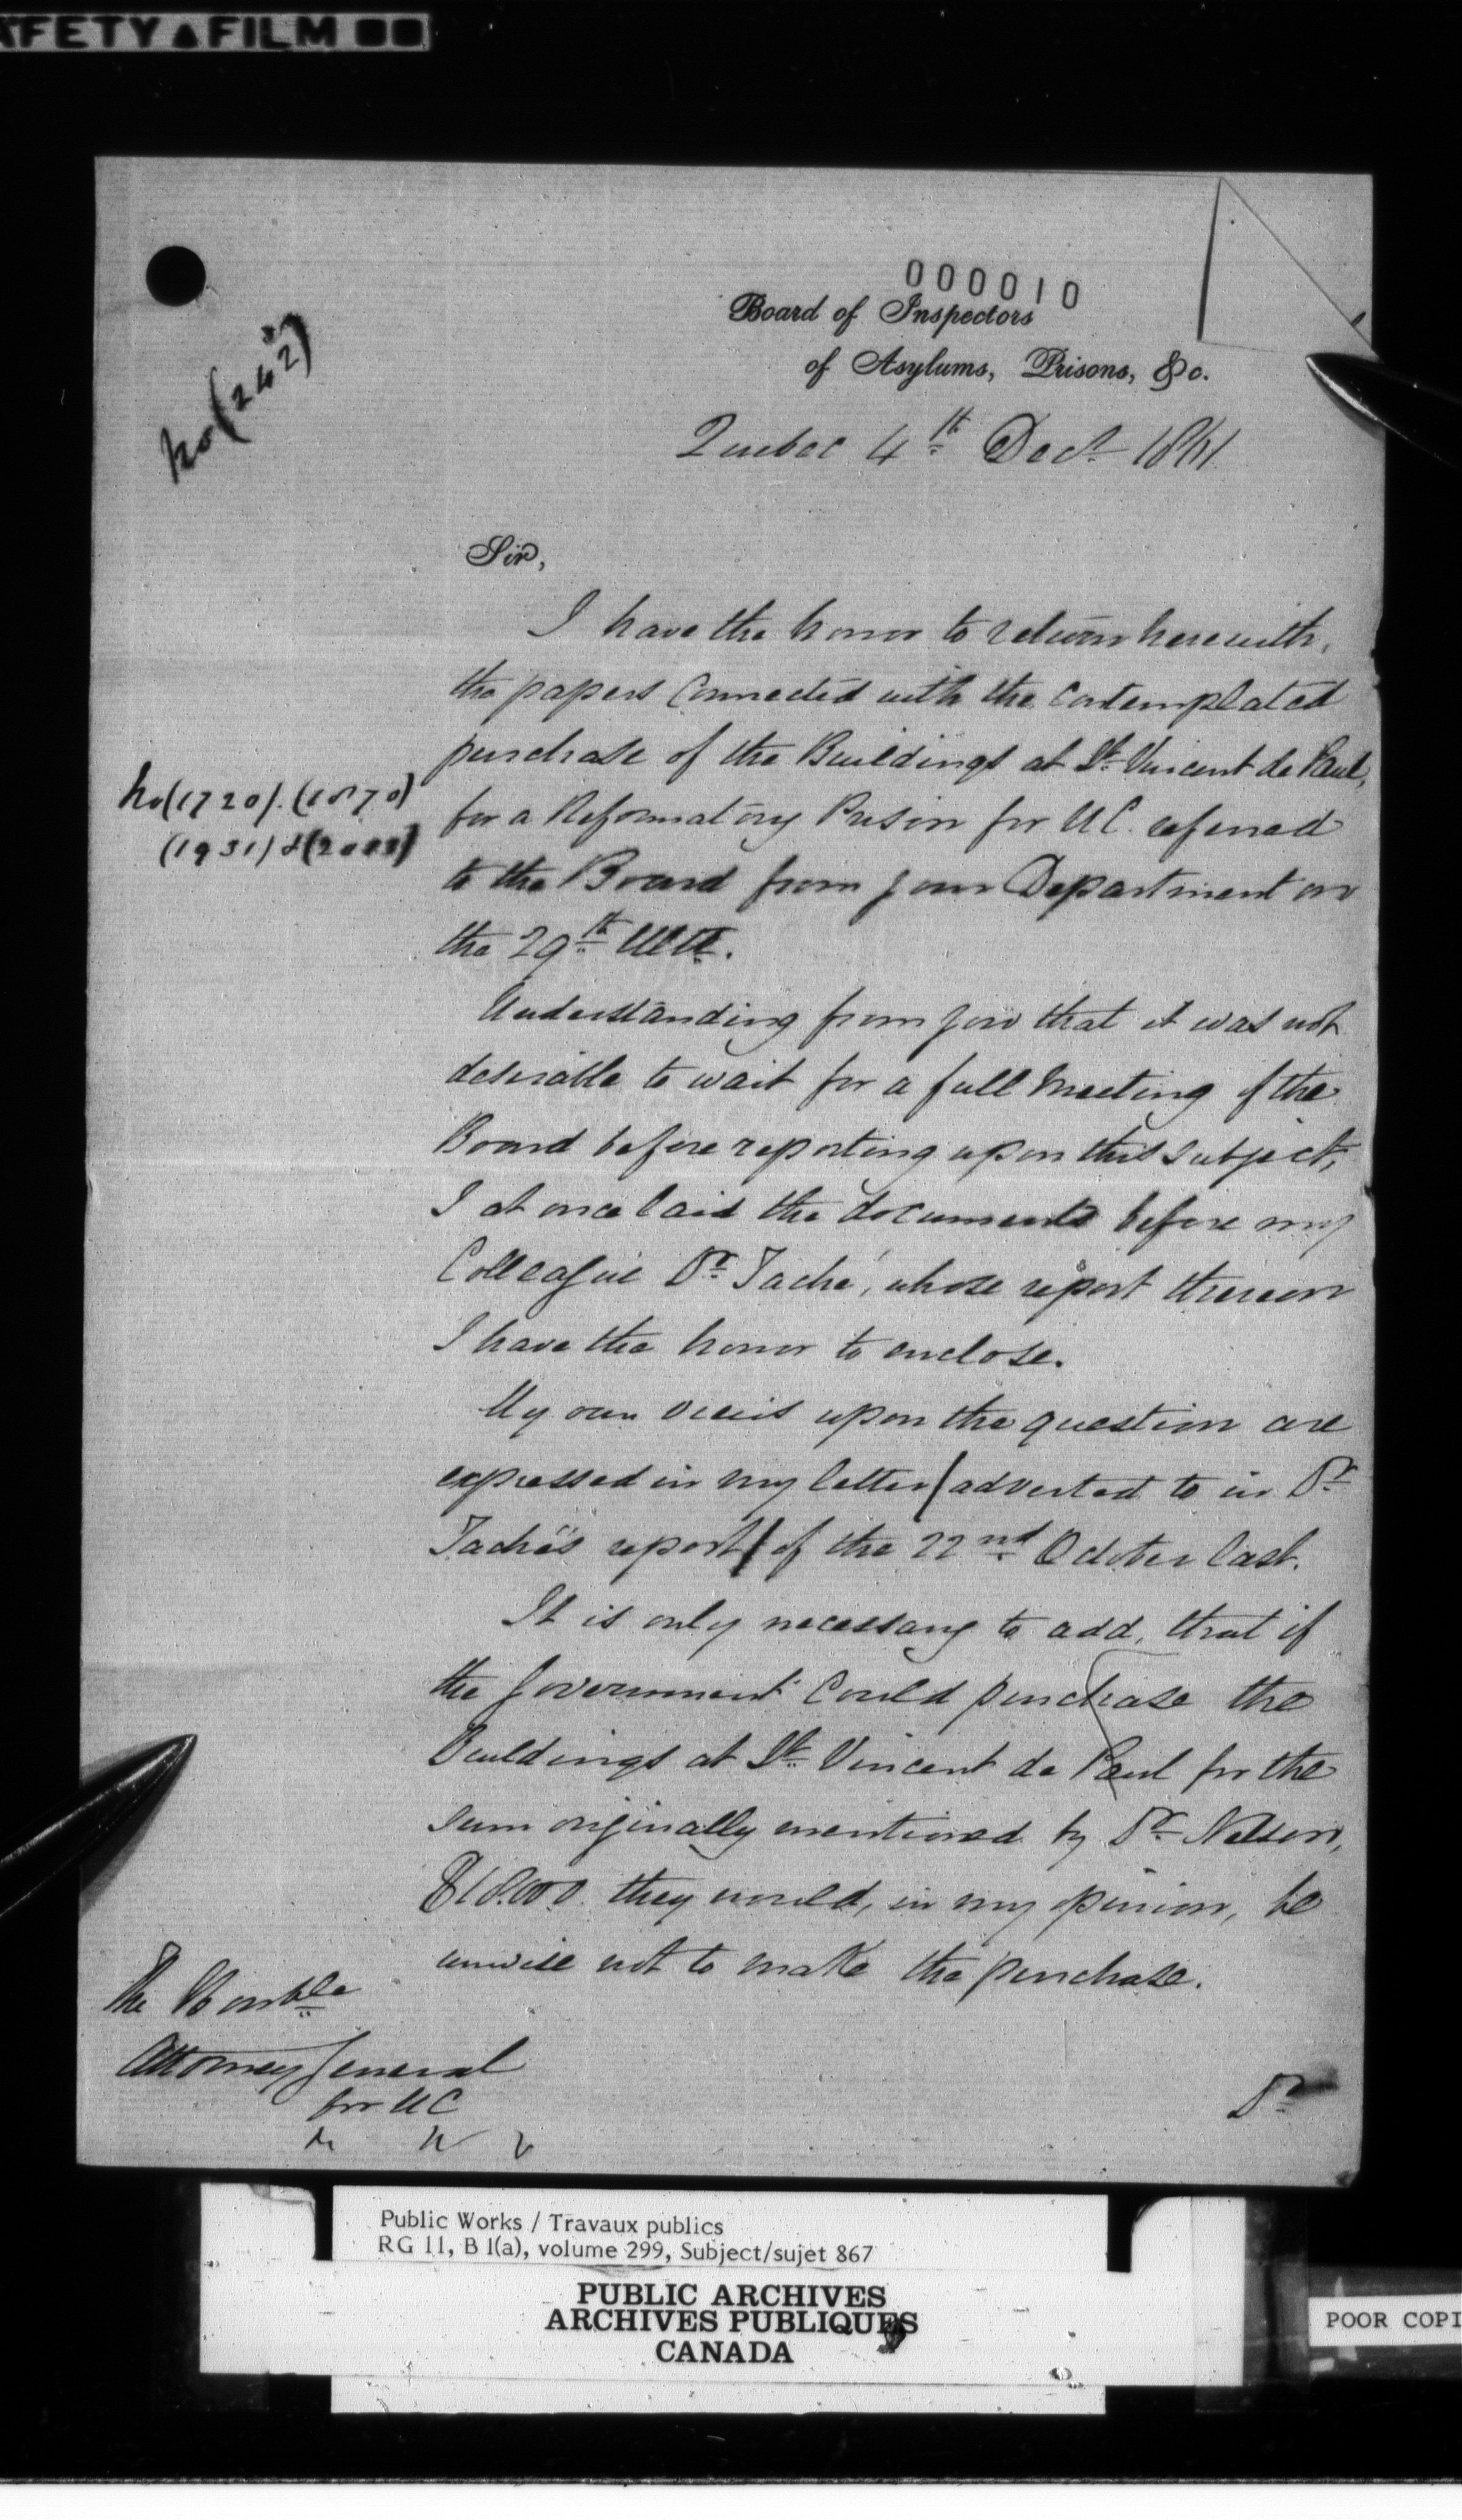 AFETY FILM
000010
Board of Inspectors
of Asylums, Prisons, &c.
No (242)
Quebec 4th Decr 1861
Sir,
I have the honor to return herewith,
the papers connected with the contemplated
purchase of the Buildings at St. Vincent de Paul,
No (1720). (1870)
(1931) &
for a Reformatory Prison for UC. referred
to the Board from your Department on
the 29th Ult.
Understanding from you that it was not
desirable to wait for a full meeting of the
Board before reporting upon this subject,
I at once laid the documents before my
Colleague Dr. Taché, whose report thereon
I have the honor to enclose.
My own views upon the question are
expressed in my letter (adverted to in Dr.
Taché's report) of the 22nd October last.
It is only necessary to add, that if
the Government could purchase the
Buildings at St. Vincent de Paul for the
sum originally mentioned by Dr. Nelson,
they would, in my opinion, be
unwise not to make the purchase.
The Honble
Attorney General
for UC
Dr.
Public Works / Travaux publics
RG 11, B 1(a), volume 299, Subject/sujet 867
PUBLIC ARCHIVES
ARCHIVES PUBLIQUES
CANADA
POOR COPI